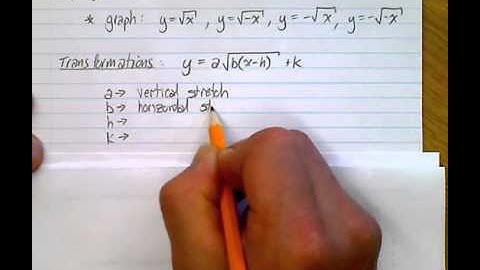 * graph: y=√x , y=√-x , y=-√x , y=-√-x
Transformations: y = a√b(x-h) + k
a → vertical stretch
b → horizontal st
h →
k →